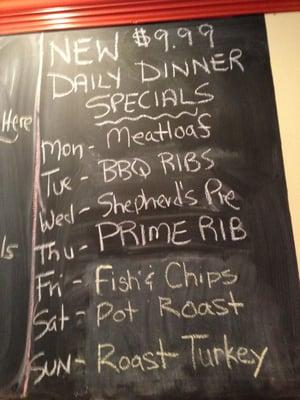 NEW $9.99
DAILY DINNER
SPECIALS
Here
Mon - Meatloaf
Tue - BBQ RIBS
Wed - Shepherd's Pie
Thu - PRIME RIB
ls
Fri - Fish & Chips
Sat - Pot Roast
SUN - Roast Turkey